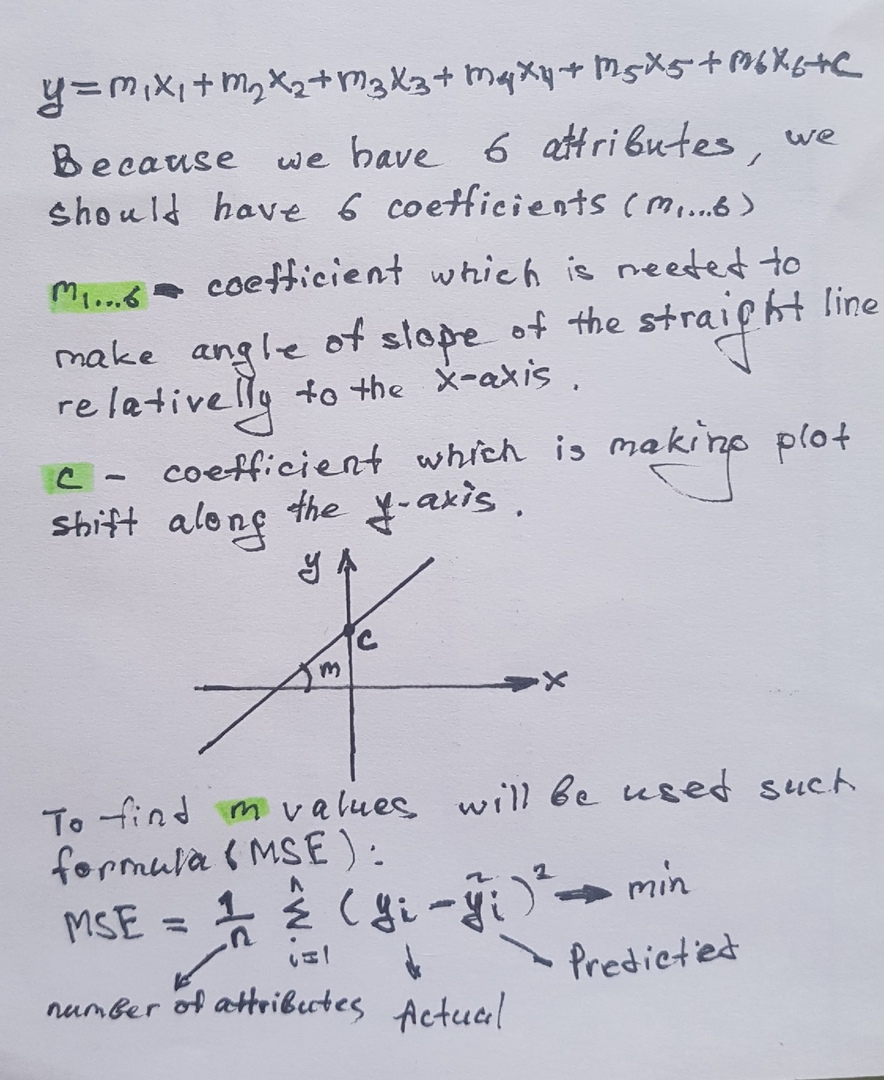 y=m₁x₁+m₂x₂+m₃x₃+m₄x₄+m₅x₅+m₆x₆+c
Because we have 6 attributes, we
should have 6 coefficients (m₁...₆)
m₁...₆ - coefficient which is needed to
make angle of slope of the straight line
relativelly to the x-axis.
c - coefficient which is making plot
shift along the y-axis.
y
c
m
x
To find m values will be used such
formula (MSE):
MSE = 1/n Σⁿᵢ₌₁ (yᵢ - ỹᵢ)² → min
Predictied
number of attributes Actual